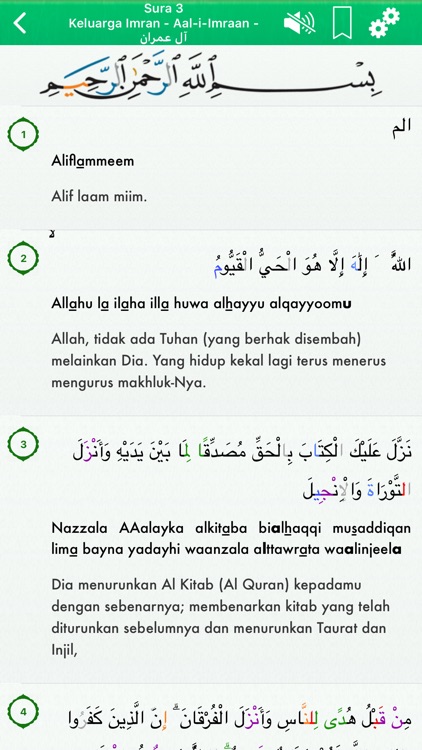 Sura 3
Keluarga Imran - Aal-i-Imraan -
آل عمران
بِسْمِ اللَّهِ الرَّحْمَٰنِ الرَّحِيمِ
1
الم
Aliflammeem
Alif laam miim.
2
اللَّهُ لَا إِلَٰهَ إِلَّا هُوَ الْحَيُّ الْقَيُّومُ
Allahu la ilaha illa huwa alhayyu alqayyoomu
Allah, tidak ada Tuhan (yang berhak disembah)
melainkan Dia. Yang hidup kekal lagi terus menerus
mengurus makhluk-Nya.
3
نَزَّلَ عَلَيْكَ الْكِتَابَ بِالْحَقِّ مُصَدِّقًا لِمَا بَيْنَ يَدَيْهِ وَأَنْزَلَ
التَّوْرَاةَ وَالْإِنْجِيلَ
Nazzala AAalayka alkitaba bialhaqqi musaddiqan
lima bayna yadayhi waanzala alttawrata waalinjeela
Dia menurunkan Al Kitab (Al Quran) kepadamu
dengan sebenarnya; membenarkan kitab yang telah
diturunkan sebelumnya dan menurunkan Taurat dan
Injil,
4
مِنْ قَبْلُ هُدًى لِلنَّاسِ وَأَنْزَلَ الْفُرْقَانَ ۗ إِنَّ الَّذِينَ كَفَرُوا